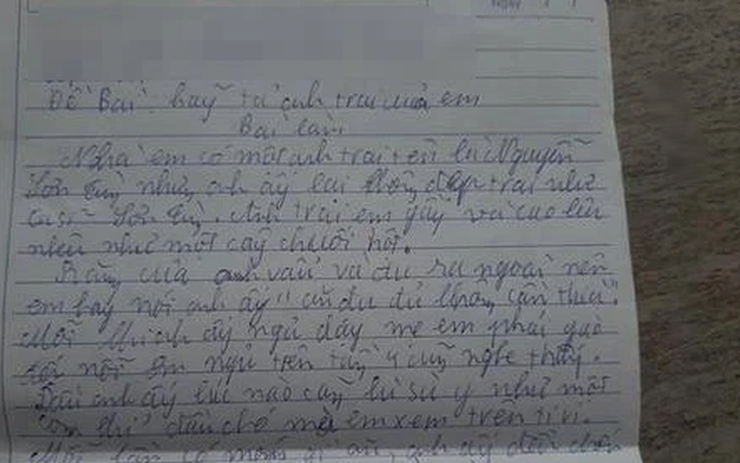 Đề Bài: hãy tả anh trai của em
Bài làm
Nhà em có một anh trai tên là Nguyễn
Sơn Tùng nhưng anh ấy lại không đẹp trai như
ca sĩ Sơn Tùng. Anh trai em gầy và cao lêu
nêu như một cây chuối hột.
Răng của anh vẩu và đưa ra ngoài nên
em hay nói anh ấy "ăn đu đủ không cần thìa".
Mỗi khi anh ấy ngủ dậy mẹ em phải gào
đến nỗi em ngủ trên tầng 4 cũng nghe thấy.
Đầu anh ấy lúc nào cũng bù xù y như một
con đầu chó mà em xem trên ti vi.
Mỗi lần có món gì ăn, anh ấy đều